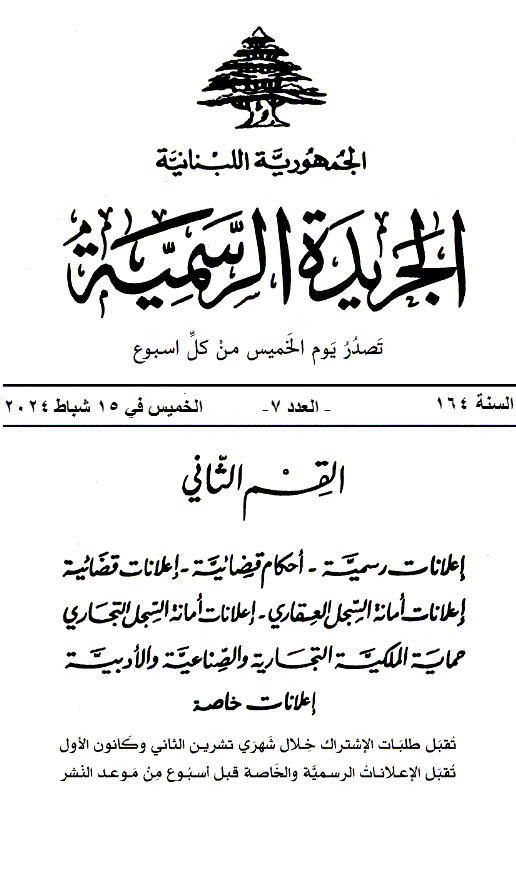 الجمهورية اللبنانية
الجريدة الرسمية
تَصدُرُ يَوم الخَميس منْ كلِّ اسبوع
السنة ١٦٤
- العدد ٧-
الخميس في ١٥ شباط ٢٠٢٤
القسم الثاني
إعلانات رسميَّة - أحكام قضائيَّة - إعلانات قضائية
إعلانات أمانة السّجل العقاري - إعلانات أمانة السّجل التجاري
حماية الملكيَّة التجارية والصّناعيَّة والأدبيَّة
إعلانات خاصة
تُقبَل طلبَات الإشتراك خِلال شَهرَي تشرين الثاني وكَانون الأول
تُقبَل الإعلاناتُ الرسميَّة والخَاصة قبل أسبُوع مِنْ مَوعد النّشر